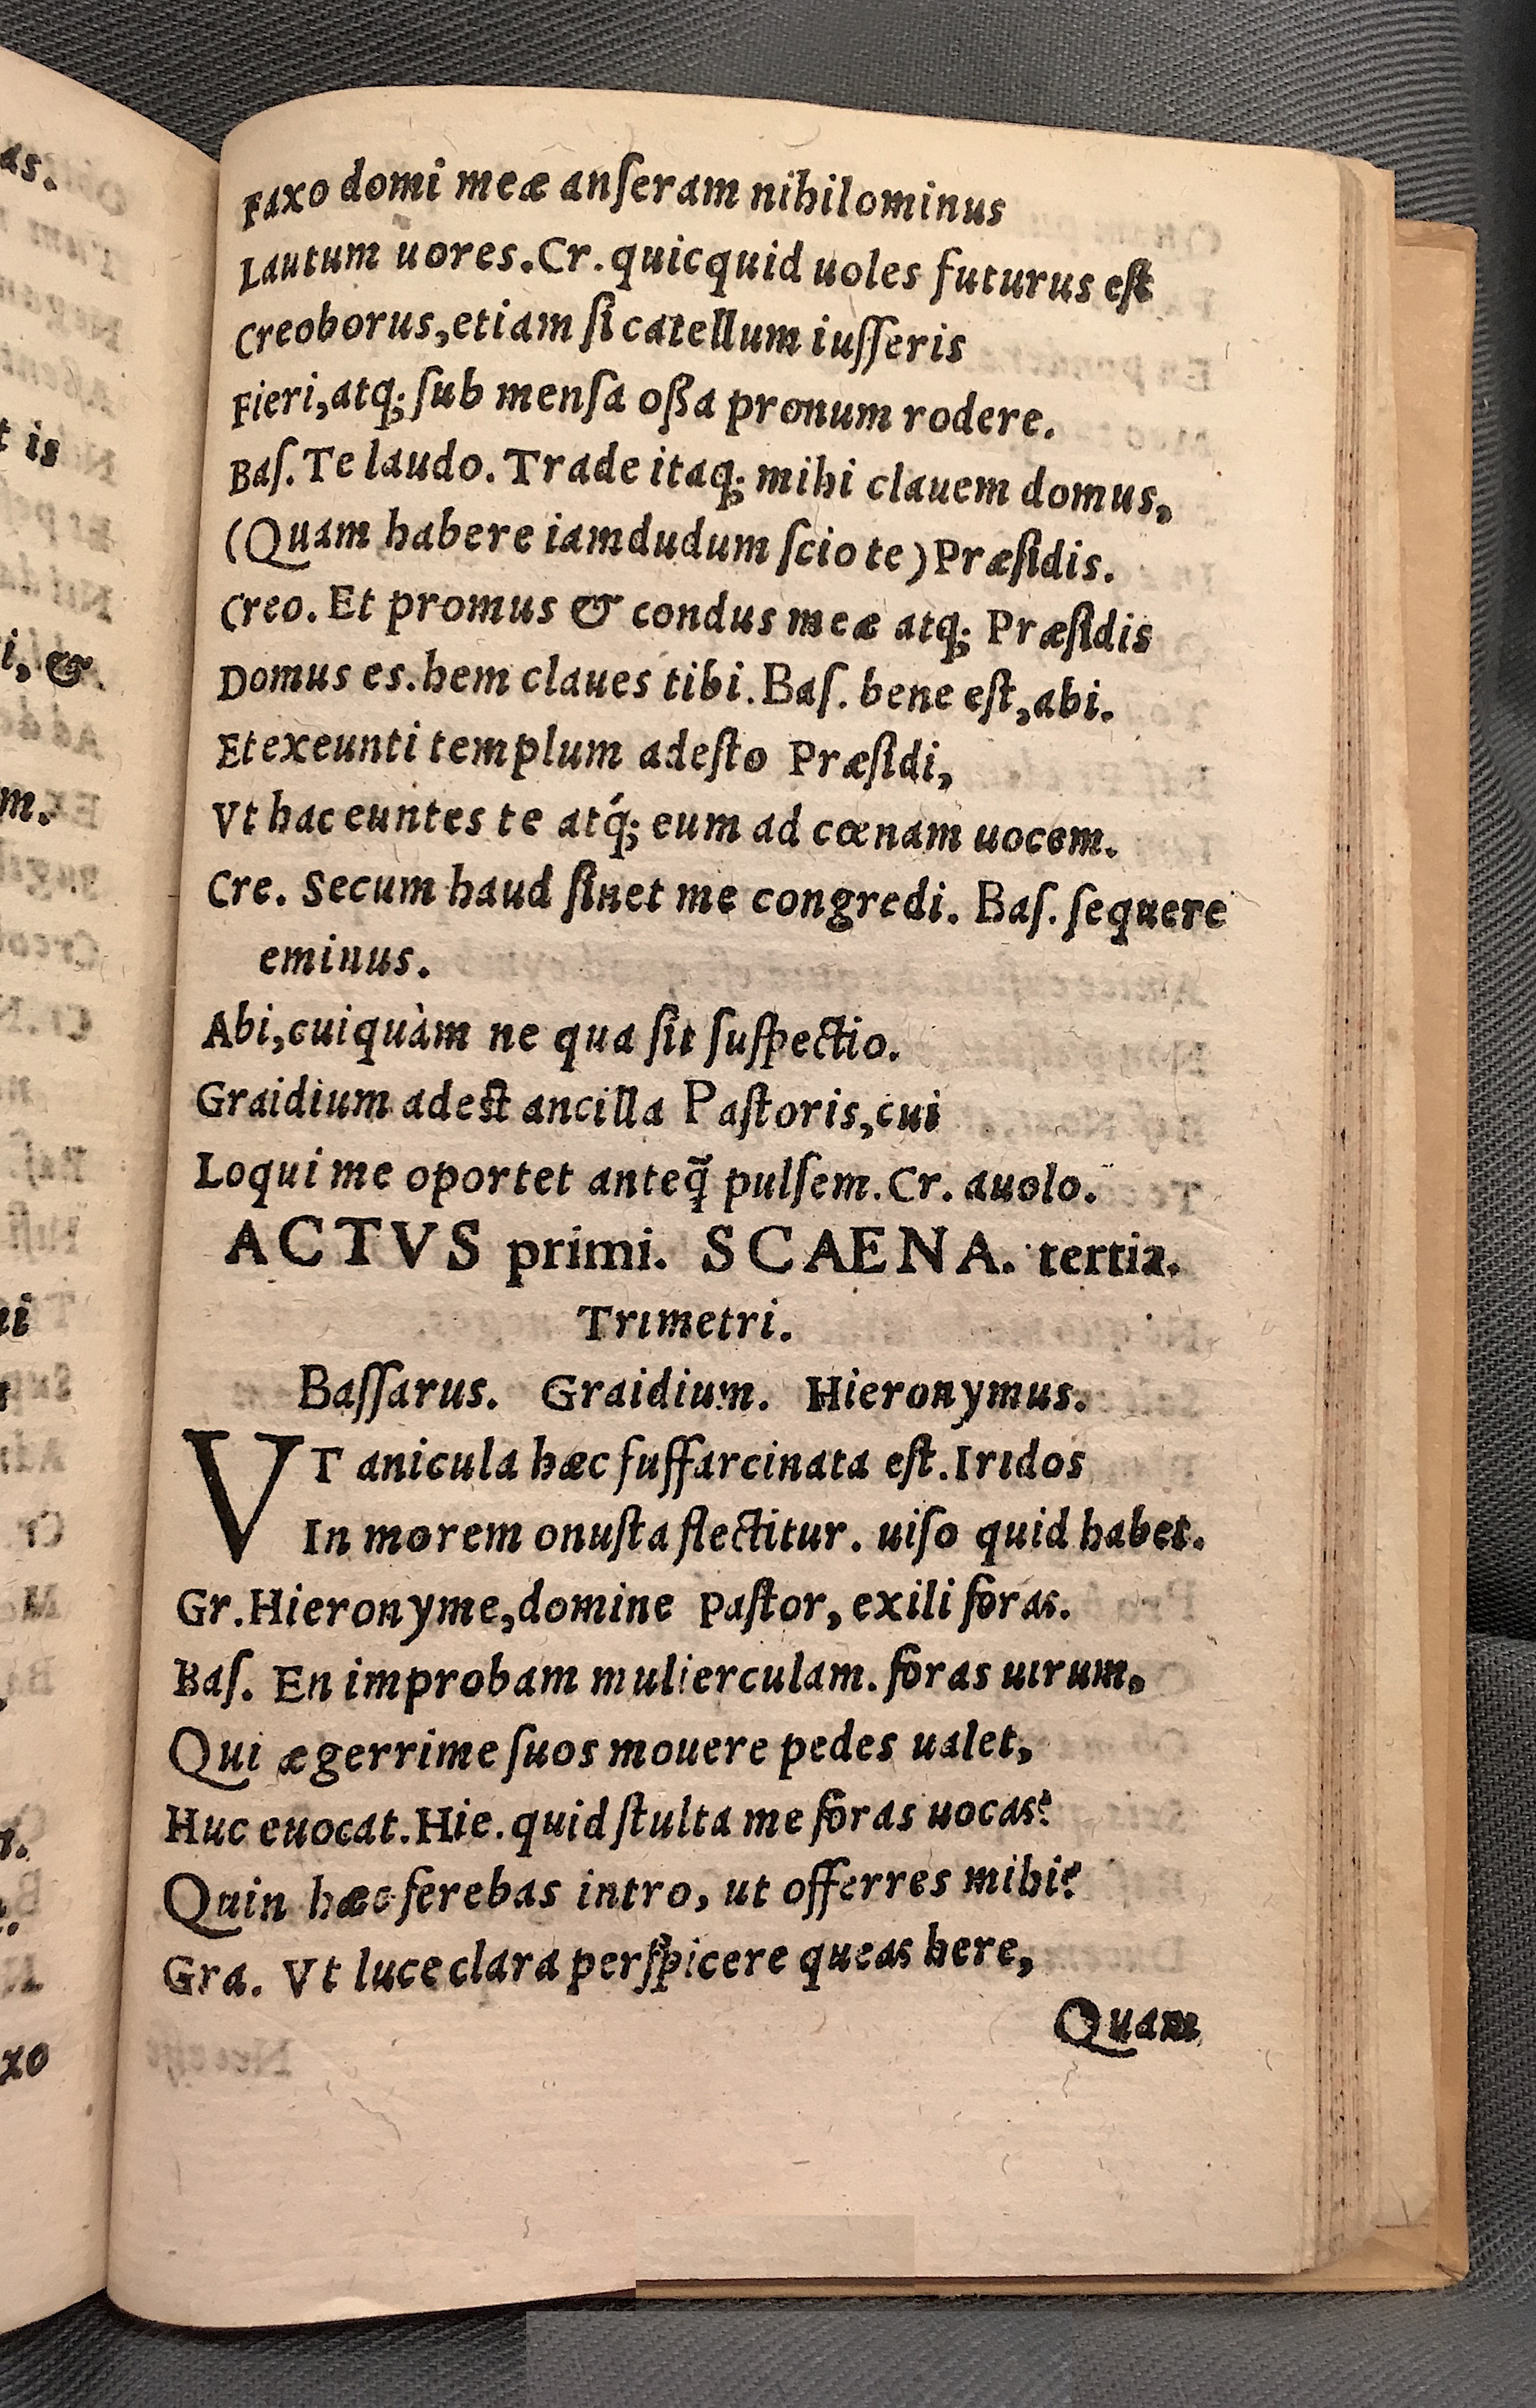 Faxo domi meæ anſeram nihilominus
Lautum uores. Cr. quicquid uoles futurus eſt
Creoborus, etiam ſi catellum iuſſeris
Fieri, atq; ſub menſa oßa pronum rodere.
Baſ. Te laudo. Trade itaq; mihi clauem domus,
(Quam habere iamdudum ſcio te) Præſidis.
Creo. Et promus & condus meæ atq; Præſidis
Domus es. hem claues tibi. Baſ. bene eſt, abi.
Et exeunti templum adeſto Præſidi,
Vt hac euntes te atq́; eum ad cœnam uocem.
Cre. Secum haud ſinet me congredi. Baſ. ſequere
eminus.
Abi, cuiquàm ne qua ſit ſuſpectio.
Graidium adeſt ancilla Paſtoris, cui
Loqui me oportet anteq̃ pulſem. Cr. auolo.
ACTVS primi. SCAENA. tertia.
Trimetri.
Baſſarus. Graidium. Hieronymus.
VT anicula hæc ſuffarcinata eſt. Iridos
In morem onuſta flectitur. uiſo quid habet.
Gr. Hieronyme, domine paſtor, exili foras.
Baſ. En improbam mulierculam. foras uirum,
Qui ægerrime ſuos mouere pedes ualet,
Huc euocat. Hie. quid ſtulta me foras uocas?
Quin hæc ferebas intro, ut offerres mihi?
Gra. Vt luce clara perſpicere queas here,
Quam
as.
t is
i, &
m.
ui
xo